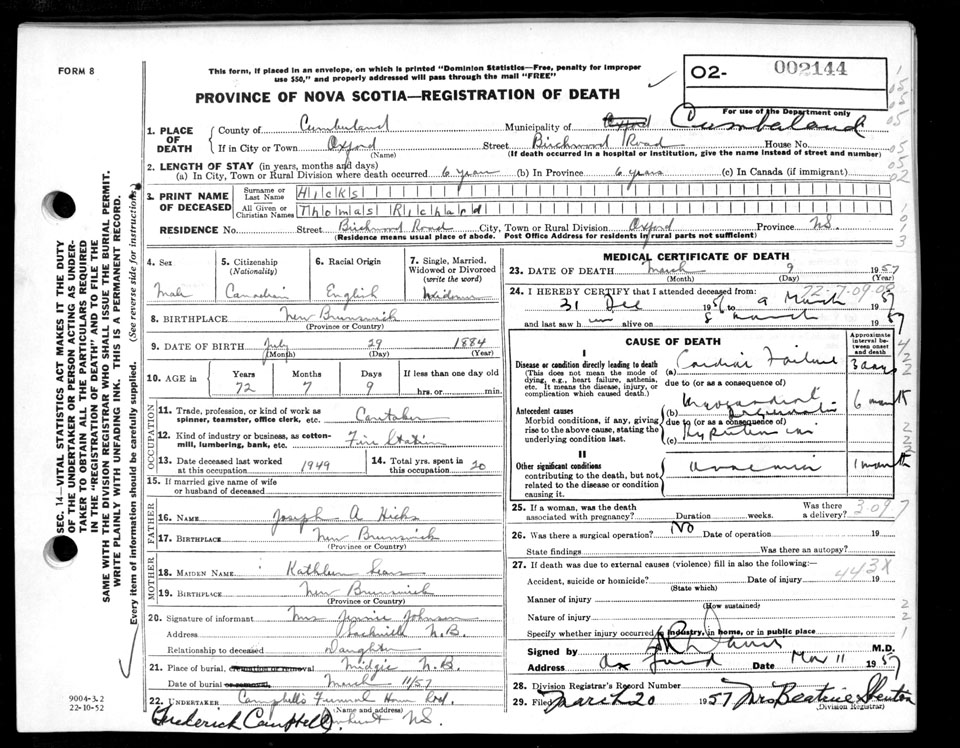 FORM 8
This form, if placed in an envelope, on which is printed "Dominion Statistics—Free, penalty for improper
use $50," and properly addressed will pass through the mail "FREE"
PROVINCE OF NOVA SCOTIA—REGISTRATION OF DEATH
O2- 002144
For use of the Department only
Cumberland
1. PLACE OF DEATH
County of Cumberland Municipality of Oxford
If in City or Town Oxford Street Birchwood Road House No.
(Name) (If death occurred in a hospital or institution, give the name instead of street and number)
2. LENGTH OF STAY (in years, months and days)
(a) In City, Town or Rural Division where death occurred 6 years (b) In Province 6 years (c) In Canada (if immigrant)
3. PRINT NAME OF DECEASED
Surname or Last Name Hicks
All Given or Christian Names Thomas Richard
RESIDENCE No. Street Birchwood Road City, Town or Rural Division Oxford Province N.S.
(Residence means usual place of abode. Post Office Address for residents in rural parts not sufficient)
4. Sex Male
5. Citizenship (Nationality) Canadian
6. Racial Origin English
7. Single, Married, Widowed or Divorced (write the word) Widower
8. BIRTHPLACE New Brunswick
(Province or Country)
9. DATE OF BIRTH July 29 1884
(Month) (Day) (Year)
10. AGE in Years Months Days If less than one day old
72 7 9 hrs. or min.
OCCUPATION
11. Trade, profession, or kind of work as spinner, teamster, office clerk, etc. Caretaker
12. Kind of industry or business, as cotton-mill, lumbering, bank, etc. Fire Station
13. Date deceased last worked at this occupation 1949
14. Total yrs. spent in this occupation 20
15. If married give name of wife or husband of deceased
FATHER
16. NAME Joseph A Hicks
17. BIRTHPLACE New Brunswick
(Province or Country)
MOTHER
18. MAIDEN NAME Kathleen Sears
19. BIRTHPLACE New Brunswick
(Province or Country)
20. Signature of informant Mrs Johnson
Address Sackville N.B.
Relationship to deceased Daughter
21. Place of burial, cremation or removal Midgic N.B.
Date of burial or removal March 11/57
22. UNDERTAKER Campbell's Funeral Home
(Name and address)
Frederick Campbell Amherst N.S.
MEDICAL CERTIFICATE OF DEATH
23. DATE OF DEATH March 9 1957
(Month) (Day) (Year)
24. I HEREBY CERTIFY that I attended deceased from:
22-7-09-08
31 Dec 1956 to 9 March 1957
and last saw him alive on 8 March 1957
CAUSE OF DEATH
Approximate interval between onset and death
I
Disease or condition directly leading to death (a) Cardiac Failure 3 days
(This does not mean the mode of dying, e.g., heart failure, asthenia, etc. It means the disease, injury, or complication which caused death.)
due to (or as a consequence of)
Antecedent causes (b) Myocardial Degeneration 6 month
Morbid conditions, if any, giving rise to the above cause, stating the underlying condition last.
due to (or as a consequence of)
(c) Hypertension
II
Other significant conditions
contributing to the death, but not related to the disease or condition causing it.
1 month
25. If a woman, was the death associated with pregnancy? Duration weeks. Was there a delivery?
3097
26. Was there a surgical operation? No Date of operation 19
State findings Was there an autopsy?
27. If death was due to external causes (violence) fill in also the following:—
443X
Accident, suicide or homicide? Date of injury 19
(State which)
Manner of injury
(How sustained)
Nature of injury
Specify whether injury occurred in industry, in home, or in public place
Signed by M.D.
Address Oxford Date Mar 11 1957
28. Division Registrar's Record Number
29. Filed March 20 1957 Mrs Beatrice Stenton
(Division Registrar)
SEC. 14—VITAL STATISTICS ACT MAKES IT THE DUTY
OF THE UNDERTAKER OR PERSON ACTING AS UNDER-
TAKER TO OBTAIN ALL THE PARTICULARS REQUIRED
IN THE "REGISTRATION OF DEATH" AND TO FILE THE
SAME WITH THE DIVISION REGISTRAR WHO SHALL ISSUE THE BURIAL PERMIT.
WRITE PLAINLY WITH UNFADING INK. THIS IS A PERMANENT RECORD.
Every item of information should be carefully supplied. (See reverse side for instructions)
9004-3.2
22-10-52